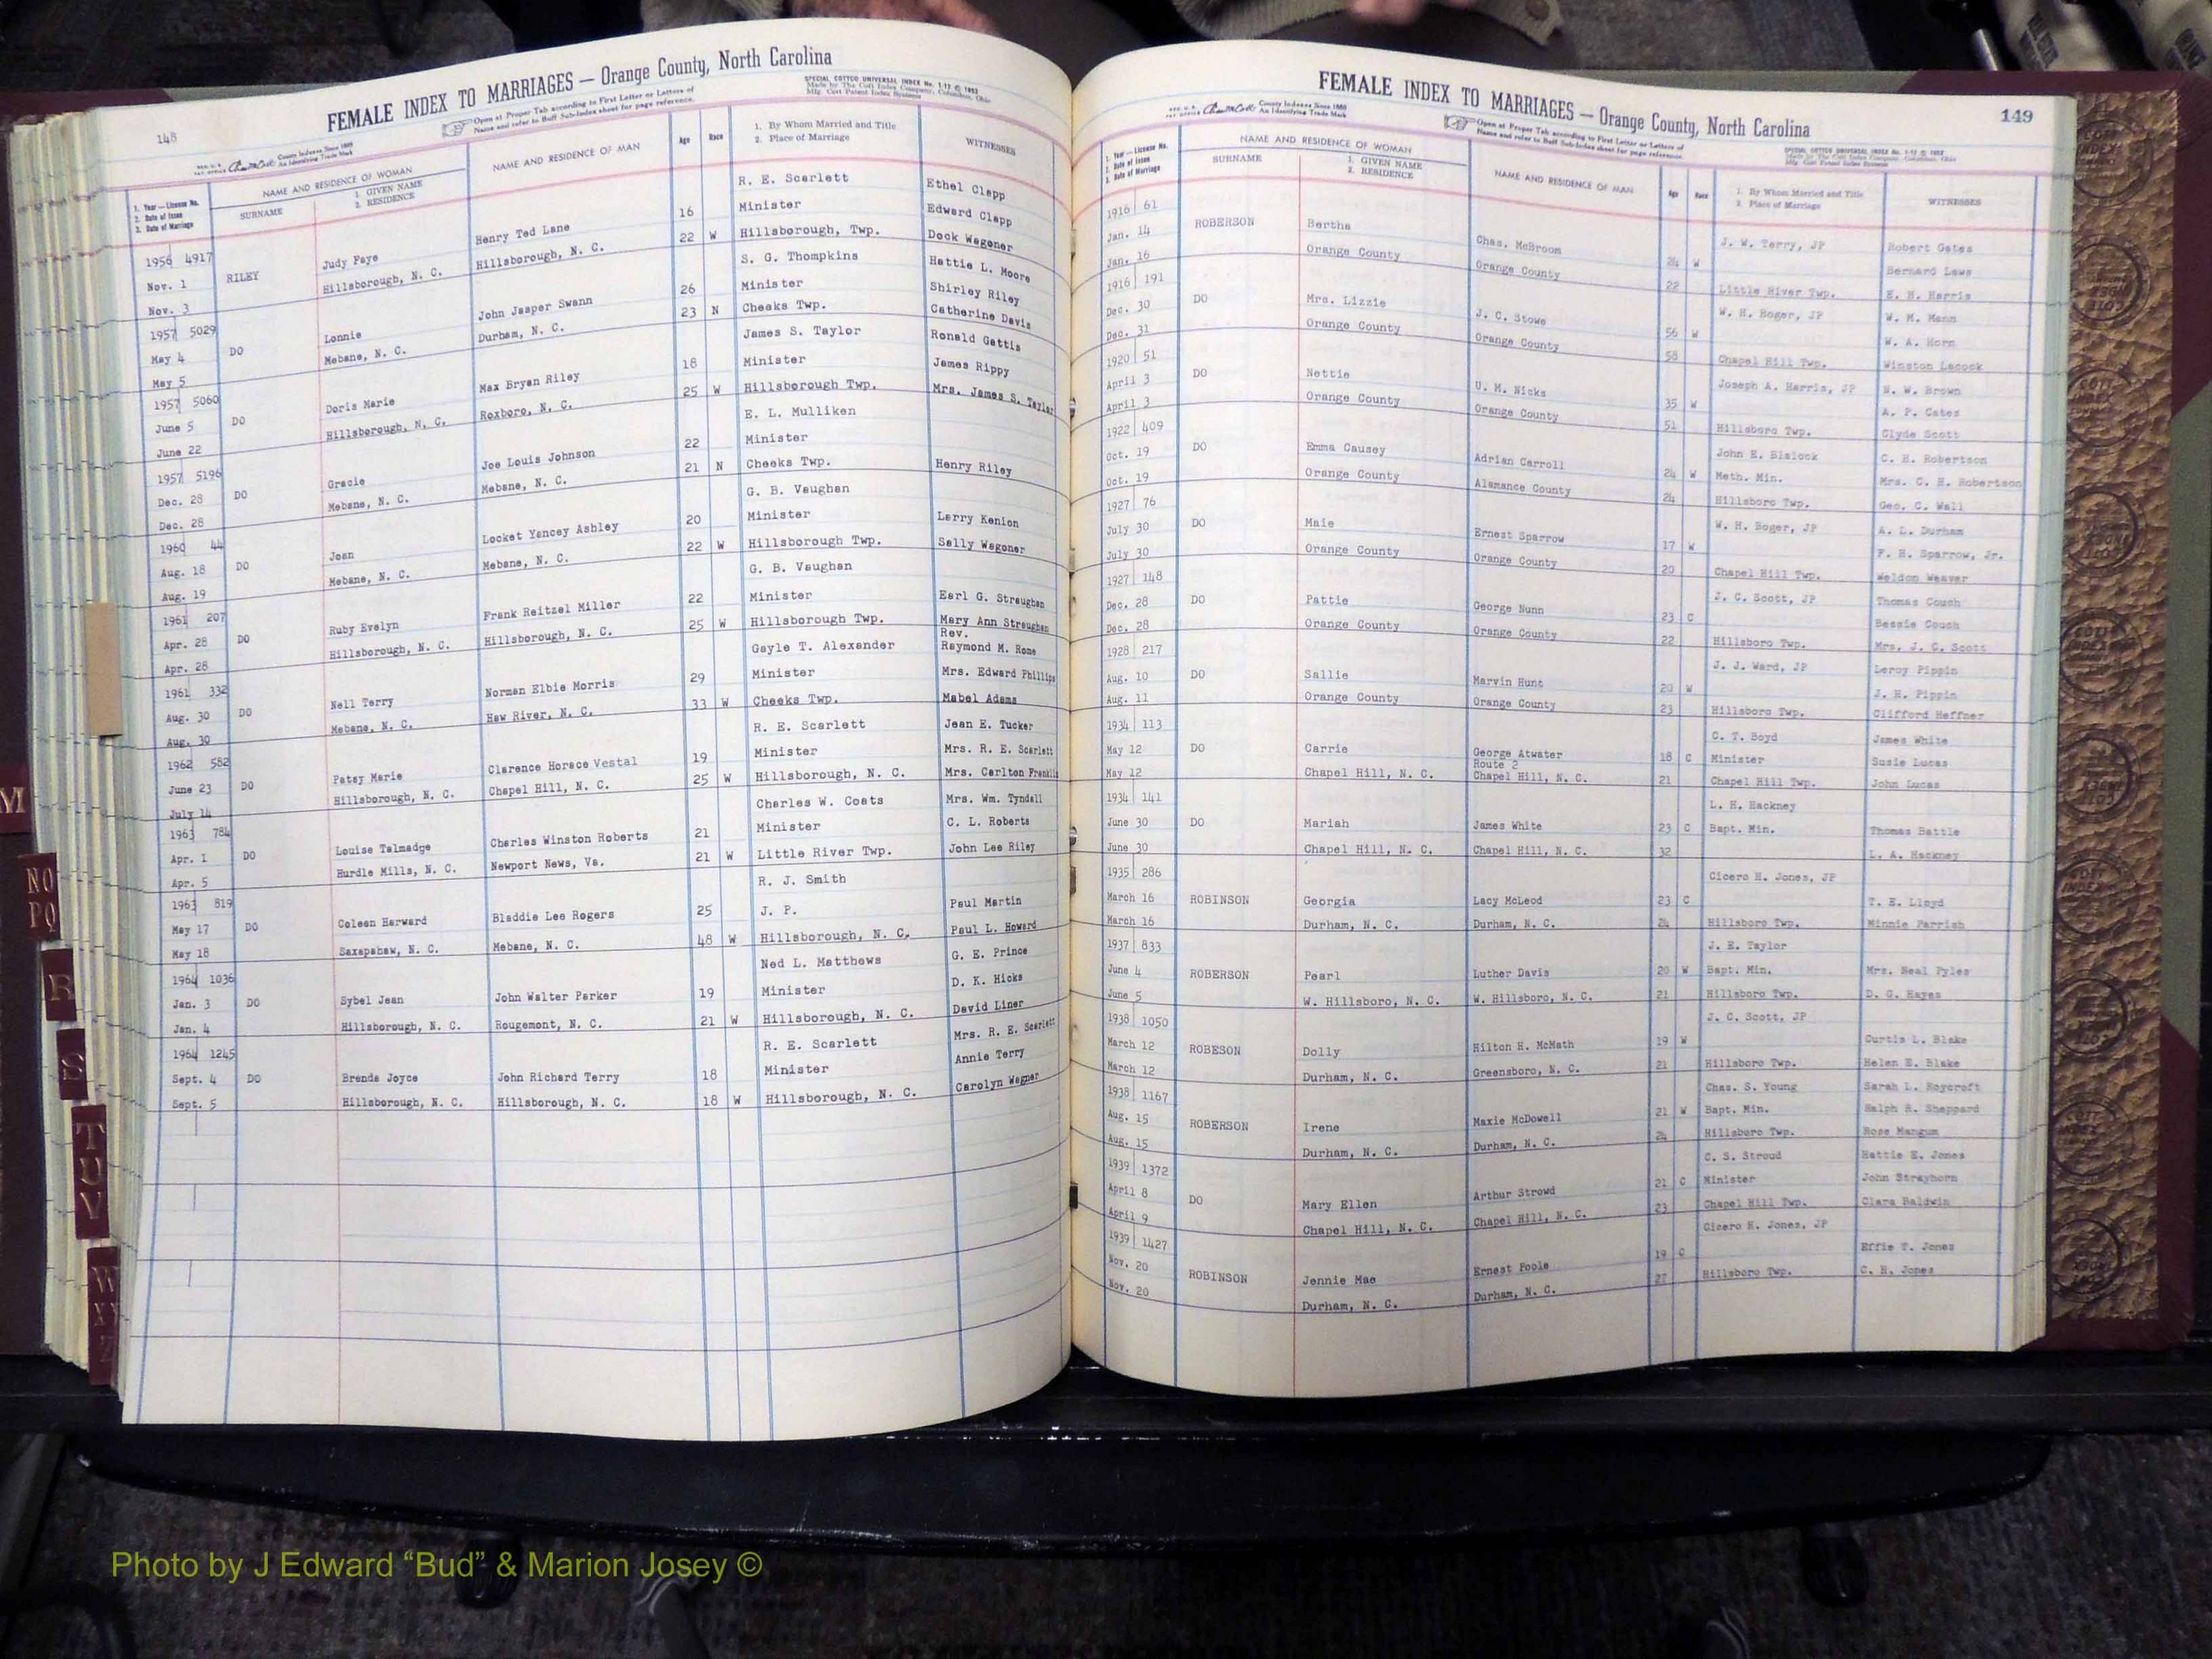 148
FEMALE INDEX TO MARRIAGES — Orange County, North Carolina
Open at Proper Tab according to First Letter or Letters of
Name and refer to Buff Sub-Index sheet for page reference.
SPECIAL COTTCO UNIVERSAL INDEX No. 1-12 © 1952
Made by The Cott Index Company, Columbus, Ohio
County Indexes Since 1888
An Identifying Trade Mark
1. Year — License No.
2. Date of Issue
3. Date of Marriage
NAME AND RESIDENCE OF WOMAN
SURNAME
1. GIVEN NAME
2. RESIDENCE
NAME AND RESIDENCE OF MAN
Age
Race
1. By Whom Married and Title
2. Place of Marriage
WITNESSES
1956 4917 R. E. Scarlett Ethel Clapp
Nov. 1 RILEY Judy Faye Henry Ted Lane 16 Minister Edward Clapp
Nov. 3 Hillsborough, N. C. Hillsborough, N. C. 22 W Hillsborough, Twp. Dock Wagoner
1957 5029 S. G. Thompkins Hattie L. Moore
May 4 DO Lonnie John Jasper Swann 26 Minister Shirley Riley
May 5 Mebane, N. C. Durham, N. C. 23 N Cheeks Twp. Catherine Davis
1957 5060 James S. Taylor Ronald Gattis
June 5 DO Doris Marie Max Bryan Riley 18 Minister James Rippy
June 22 Hillsborough, N. C. Roxboro, N. C. 25 W Hillsborough Twp. Mrs. James S. Taylor
1957 5196 E. L. Mulliken
Dec. 28 DO Gracie Joe Louis Johnson 22 Minister
Dec. 28 Mebane, N. C. Mebane, N. C. 21 N Cheeks Twp. Henry Riley
1960 44 G. B. Vaughan
Aug. 18 DO Joan Locket Yancey Ashley 20 Minister Larry Kenion
Aug. 19 Mebane, N. C. Mebane, N. C. 22 W Hillsborough Twp. Sally Wagoner
1961 207 G. B. Vaughan
Apr. 28 DO Ruby Evelyn Frank Reitzel Miller 22 Minister Earl G. Straughan
Apr. 28 Hillsborough, N. C. Hillsborough, N. C. 25 W Hillsborough Twp. Mary Ann Straughan
1961 332 Gayle T. Alexander Rev. Raymond M. Rome
Aug. 30 DO Nell Terry Norman Elbie Morris 29 Minister Mrs. Edward Phillips
Aug. 30 Mebane, N. C. Haw River, N. C. 33 W Cheeks Twp. Mabel Adams
1962 582 R. E. Scarlett Jean E. Tucker
June 23 DO Patsy Marie Clarence Horace Vestal 19 Minister Mrs. R. E. Scarlett
July 14 Hillsborough, N. C. Chapel Hill, N. C. 25 W Hillsborough, N. C. Mrs. Carlton Franklin
1963 784 Charles W. Coats Mrs. Wm. Tyndall
Apr. 1 DO Louise Talmadge Charles Winston Roberts 21 Minister C. L. Roberts
Apr. 5 Hurdle Mills, N. C. Newport News, Va. 21 W Little River Twp. John Lee Riley
1963 819 R. J. Smith
May 17 DO Coleen Harward Bladdie Lee Rogers 25 J. P. Paul Martin
May 18 Saxapahaw, N. C. Mebane, N. C. 48 W Hillsborough, N. C. Paul L. Howard
1964 1036 Ned L. Matthews G. E. Prince
Jan. 3 DO Sybel Jean John Walter Parker 19 Minister D. K. Hicks
Jan. 4 Hillsborough, N. C. Rougemont, N. C. 21 W Hillsborough, N. C. David Liner
1964 1245 R. E. Scarlett Mrs. R. E. Scarlett
Sept. 4 DO Brenda Joyce John Richard Terry 18 Minister Annie Terry
Sept. 5 Hillsborough, N. C. Hillsborough, N. C. 18 W Hillsborough, N. C. Carolyn Wagner
149
FEMALE INDEX TO MARRIAGES — Orange County, North Carolina
Open at Proper Tab according to First Letter or Letters of
Name and refer to Buff Sub-Index sheet for page reference.
SPECIAL COTTCO UNIVERSAL INDEX No. 1-12 © 1952
Made by The Cott Index Company, Columbus, Ohio
County Indexes Since 1888
An Identifying Trade Mark
1. Year — License No.
2. Date of Issue
3. Date of Marriage
NAME AND RESIDENCE OF WOMAN
SURNAME
1. GIVEN NAME
2. RESIDENCE
NAME AND RESIDENCE OF MAN
Age
Race
1. By Whom Married and Title
2. Place of Marriage
WITNESSES
1916 61 J. W. Terry, JP Robert Gates
Jan. 14 ROBERSON Bertha Chas. McBroom 24 W Bernard Laws
Jan. 16 Orange County Orange County 22 Little River Twp. E. H. Harris
1916 191 W. H. Boger, JP W. M. Mann
Dec. 30 DO Mrs. Lizzie J. C. Stowe 56 W W. A. Horn
Dec. 31 Orange County Orange County 58 Chapel Hill Twp. Winston Lacock
1920 51 Joseph A. Harris, JP N. W. Brown
April 3 DO Nettie U. M. Nicks 35 W A. P. Cates
April 3 Orange County Orange County 51 Hillsboro Twp. Clyde Scott
1922 409 John E. Blalock C. H. Robertson
Oct. 19 DO Emma Causey Adrian Carroll 24 W Meth. Min. Mrs. C. H. Robertson
Oct. 19 Orange County Alamance County 24 Hillsboro Twp. Geo. C. Wall
1927 76 W. H. Boger, JP A. L. Durham
July 30 DO Maie Ernest Sparrow 17 W F. H. Sparrow, Jr.
July 30 Orange County Orange County 20 Chapel Hill Twp. Weldon Weaver
1927 148 J. C. Scott, JP Thomas Couch
Dec. 28 DO Pattie George Nunn 23 C Bessie Couch
Dec. 28 Orange County Orange County 22 Hillsboro Twp. Mrs. J. C. Scott
1928 217 J. J. Ward, JP Leroy Pippin
Aug. 10 DO Sallie Marvin Hunt 20 W J. H. Pippin
Aug. 11 Orange County Orange County 23 Hillsboro Twp. Clifford Heffner
1934 113 C. T. Boyd James White
May 12 DO Carrie George Atwater Route 2 18 C Minister Susie Lucas
May 12 Chapel Hill, N. C. Chapel Hill, N. C. 21 Chapel Hill Twp. John Lucas
1934 141 L. H. Hackney
June 30 DO Mariah James White 23 C Bapt. Min. Thomas Battle
June 30 Chapel Hill, N. C. Chapel Hill, N. C. 32 L. A. Hackney
1935 286 Cicero H. Jones, JP
March 16 ROBINSON Georgia Lacy McLeod 23 C T. E. Lloyd
March 16 Durham, N. C. Durham, N. C. 24 Hillsboro Twp. Minnie Parrish
1937 833 J. E. Taylor
June 4 ROBERSON Pearl Luther Davis 20 W Bapt. Min. Mrs. Neal Pyles
June 5 W. Hillsboro, N. C. W. Hillsboro, N. C. 21 Hillsboro Twp. D. G. Hayes
1938 1050 J. C. Scott, JP
March 12 ROBESON Dolly Hilton H. McMath 19 W Curtis L. Blake
March 12 Durham, N. C. Greensboro, N. C. 21 Hillsboro Twp. Helen E. Blake
1938 1167 Chas. S. Young Sarah L. Roycroft
Aug. 15 ROBERSON Irene Maxie McDowell 21 W Bapt. Min. Ralph R. Sheppard
Aug. 15 Durham, N. C. Durham, N. C. 24 Hillsboro Twp. Rose Mangum
1939 1372 C. S. Stroud Hattie E. Jones
April 8 DO Mary Ellen Arthur Strowd 21 C Minister John Strayhorn
April 9 Chapel Hill, N. C. Chapel Hill, N. C. 23 Chapel Hill Twp. Clara Baldwin
1939 1427 Cicero H. Jones, JP
Nov. 20 ROBINSON Jennie Mae Ernest Poole 19 C Effie T. Jones
Nov. 20 Durham, N. C. Durham, N. C. 27 Hillsboro Twp. C. H. Jones
M
NO
PQ
R
S
T
U
V
W
XY
Z
Photo by J Edward “Bud” & Marion Josey ©